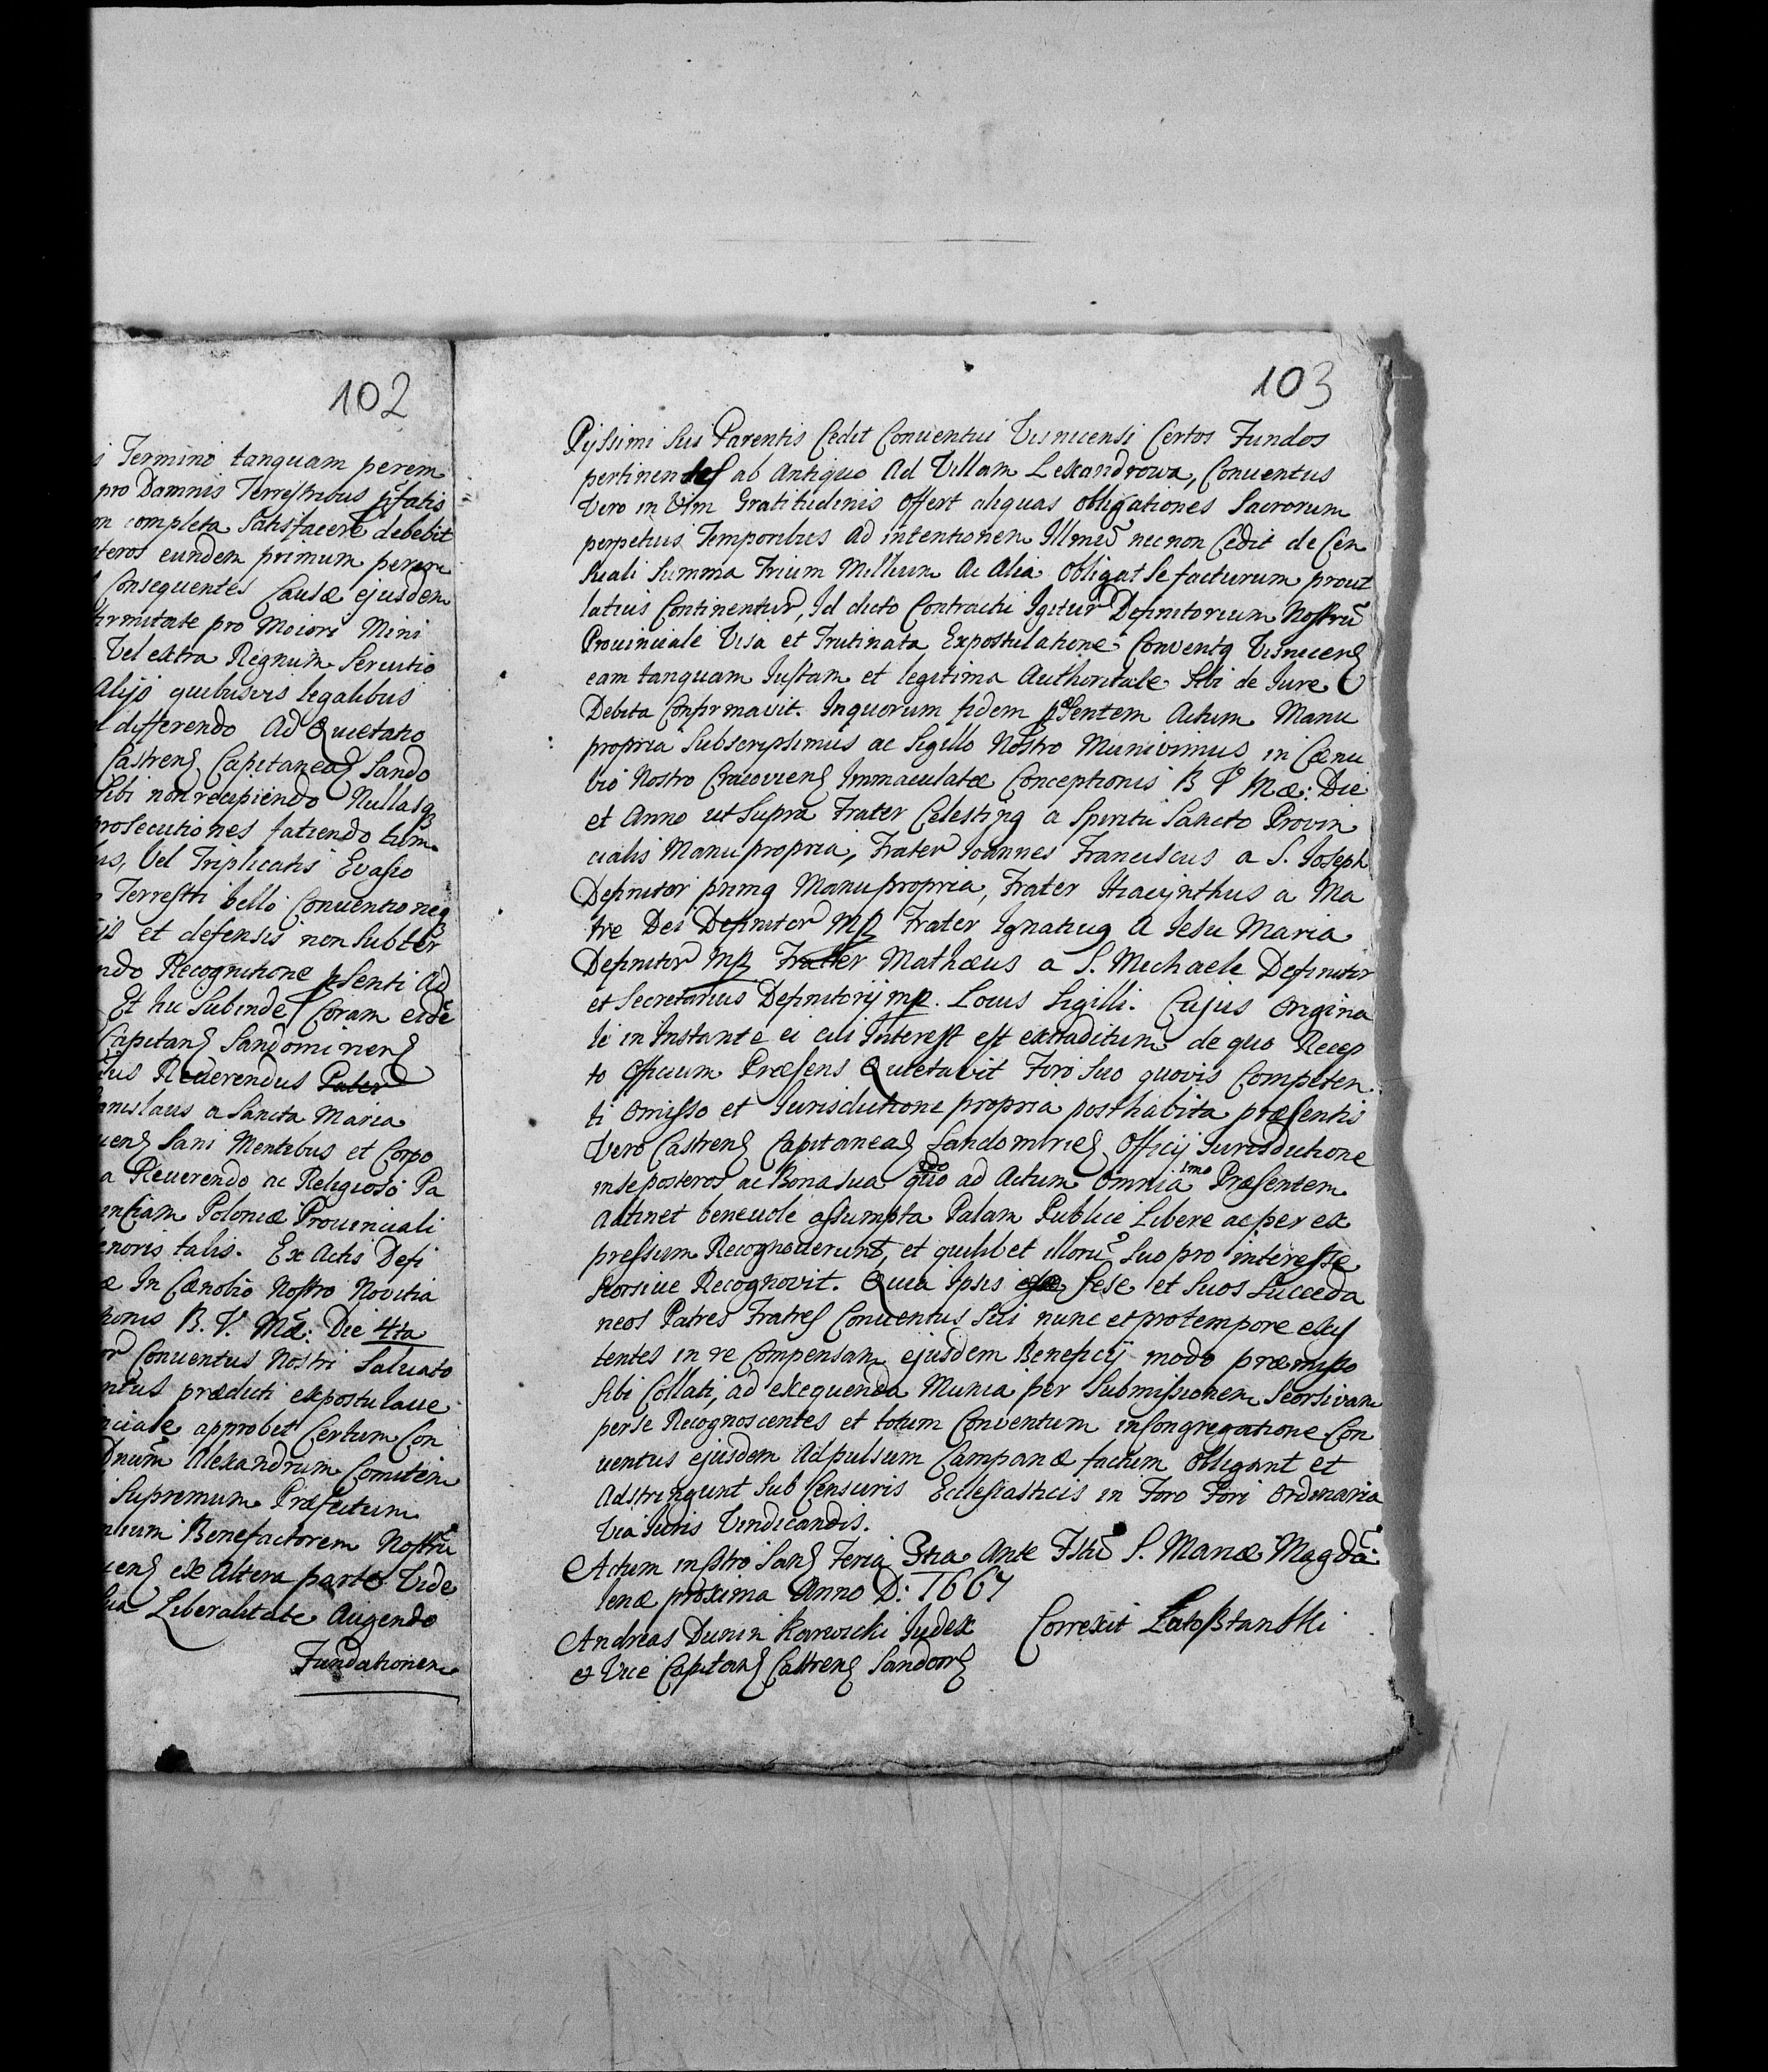 102
s Termino tanquam perem
pro Damnis Terrestribus pfatis
m completa Satisfacere debebit
steros eundem primum perem
Consequentes Causæ ejusdem
firmitate pro Maiori Mini
Vel extra Regnum Servitio
Alijs quibusvis legalibus
l differendo Ad Quietatio
Castren Capitanea Sando
Sibi non recipiendo Nullasq
prosecutiones fatiendo tum
us, Vel Triplicatis Evasio
Terrestri bello Conventioneq
ijs et defensis non Subter
ndo Recognitione pSenti Ad
Et hic Subinde Coram eide
Capitan Sandomirien
tus Reverendus Pater
anislaus a Sancta Maria
cens Sani Mentibus et Corpo
a Reverendo ac Religioso Pa
entiam Poloniæ Provinciali
enoris talis. Ex Actis Defi
æ In Cænobio Nostro Novitia
tionis B. V. Mæ: Die 4ta
or Conventus Nostri Salvato
entus prædicti expostulave
nciale approbet Certum Con
Dnum Alexandrum Comitem
Supremum Præfectum
alium Benefactorem Nostru
cens ex Altera parte Vide
sua Liberalitate Augendo
Fundationem
103
Pijssimi Sui Parentis Cedit Conventui Visnicensi Certos Fundos
pertinentes ab Antiquo Ad Villam Lexandrowa, Conventus
Vero in Vim Gratitudinis offert aliquas obligationes Sacrorum
perpetuis Temporibus ad intentionem Illmi nec non Cedit de Cen
Suali Summa Trium Millium Ac Alia obligat Se facturum prout
latius Continentur, Id dicto Contractu Igitur Definitorium Nostru
Provinciale Visa et Trutinata Expostulatione Conventq Visnicens
eam tanquam Justam et legitima Authoritate Sibi de Jure
Debita Confirmavit. In quorum fidem pSentem Actum Manu
propria Subscripsimus ac Sigillo Nostro Munivimus in Cænu
bio Nostro Cracoviens Immaculatæ Conceptionis B V Mæ: Die
et Anno ut Supra Frater Celestinq a Spiritu Sancto Provin
cialis Manu propria, Frater Joannes Franciscus a S. Joseph
Definitor primq Manu propria, Frater Hiacynthus a Ma
tre Dei Definitor mp Frater Ignatius A Jesu Maria
Definitor mp Frater Mathæus a S. Michaele Definitor
et Secretarius Definitorij mp. Locus Sigilli. Cujus Origina
le in Instante ei cui Interest est extraditum de quo Recep
to Officium Præsens Quietavit Foro Suo quovis Competen
ti omisso et Jurisdictione propria posthabita præsentis
Vero Castrens Capitanea Sandomirie Officij Jurisdictione
in se posteros ac Bona Sua quo ad Actum Omnia Præsentem
Attinet benevole assumpta Palam Publice Libere ac per ex
pressum Recognoverunt, et quilibet illoru Suo pro interesse
Seorsive Recognovit. Quia Ipsi Sese et Suos Succeda
neos Patres Fratres Conventus Sui nunc et pro tempore exis
tentes in re Compensam ejusdem Beneficij modo præmisso
Sibi Collati, ad exequenda Munia per Submissionem Seorsivam
per Se Recognoscentes et totum Conventum in Congregatione Con
ventus ejusdem Ad pulsum Campanæ factum Obligant et
Adstringunt Sub Censuris Ecclesiasticis in Foro Fori Ordinaria
Via Juris Vindicandis.
Actum in Stro San Feria 3tia Ante Fstu S. Mariæ Magda
lenæ proxima Anno D: 1667
Andreas Dunin Karwicki Judex
et Vice Capitan Castren Sandom
Correxit